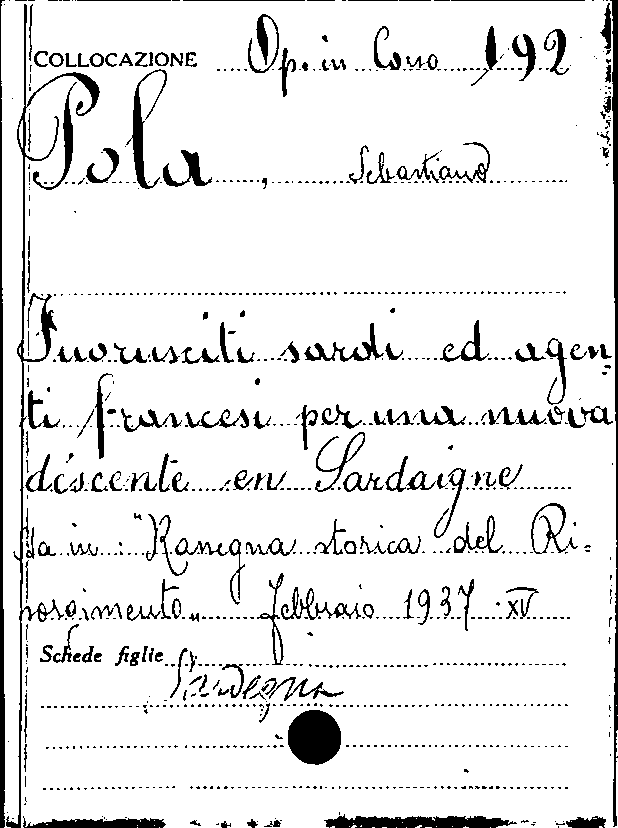 COLLOCAZIONE Op. in Corso 192
Pola, Sebastiano
Fuorusciti sardi ed agen=
ti francesi per una nuova
déscente en Sardaigne
Sta in: "Rassegna storica del Ri=
sorgimento" Febbraio 1937 - XV
Schede figlie
Sardegna